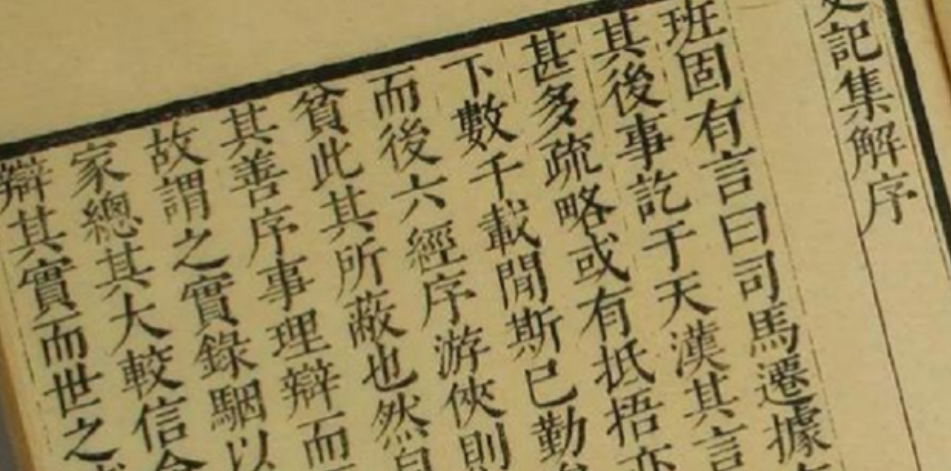 史記集解序
班固有言曰司馬遷據
其後事訖于天漢其言
甚多疏略或有抵捂亦
下數千載閒斯已勤矣
而後六經序游俠則
貧此其所蔽也然自
其善序事理辯而
故謂之實錄駰以
家總其大較信命
辯其實而世之